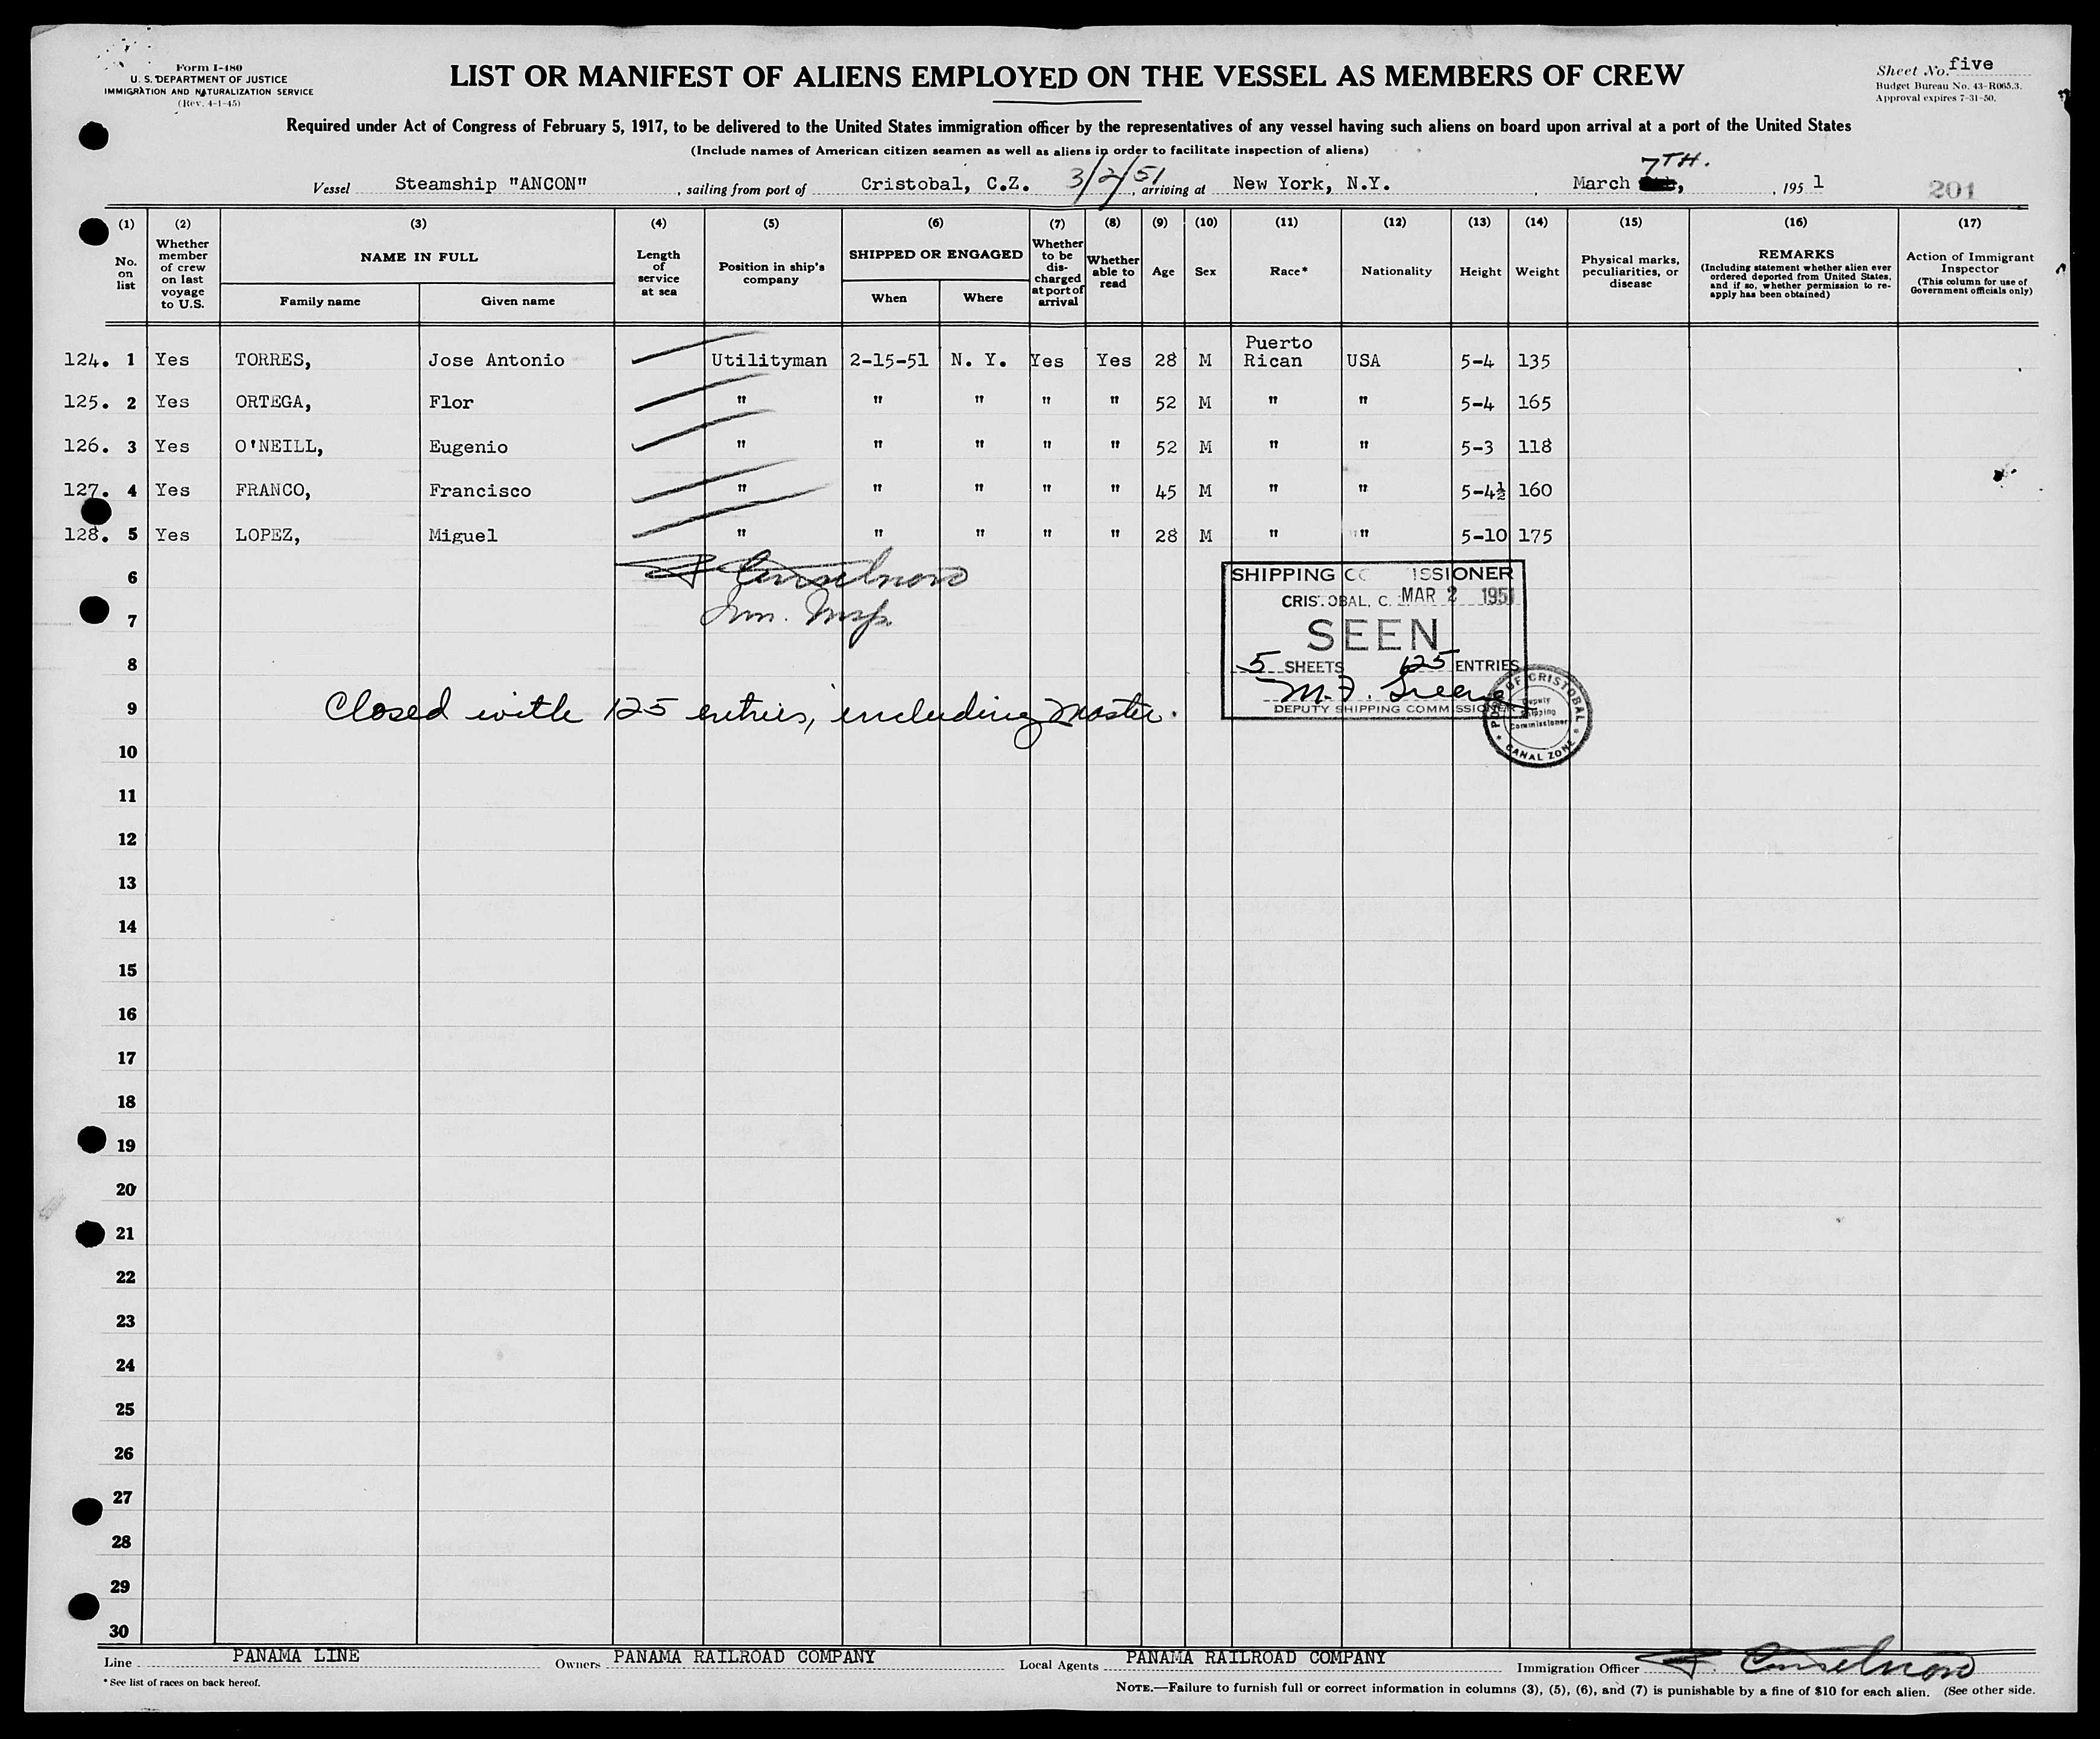 Form I-480
U. S. DEPARTMENT OF JUSTICE
IMMIGRATION AND NATURALIZATION SERVICE
(Rev. 4-1-45)
LIST OR MANIFEST OF ALIENS EMPLOYED ON THE VESSEL AS MEMBERS OF CREW
Sheet No. five
Budget Bureau No. 43-R065.3.
Approval expires 7-31-50.
Required under Act of Congress of February 5, 1917, to be delivered to the United States immigration officer by the representatives of any vessel having such aliens on board upon arrival at a port of the United States
(Include names of American citizen seamen as well as aliens in order to facilitate inspection of aliens)
Vessel Steamship "ANCON", sailing from port of Cristobal, C.Z. 3/2/51, arriving at New York, N.Y., March 7TH., 1951
201
(1) (2) (3) (4) (5) (6) (7) (8) (9) (10) (11) (12) (13) (14) (15) (16) (17)
No. on list
Whether member of crew on last voyage to U.S.
NAME IN FULL
Family name
Given name
Length of service at sea
Position in ship's company
SHIPPED OR ENGAGED
When
Where
Whether to be discharged at port of arrival
Whether able to read
Age
Sex
Race*
Nationality
Height
Weight
Physical marks, peculiarities, or disease
REMARKS
(Including statement whether alien ever ordered deported from United States, and if so, whether permission to re-apply has been obtained)
Action of Immigrant Inspector
(This column for use of Government officials only)
124. 1 Yes TORRES, Jose Antonio Utilityman 2-15-51 N. Y. Yes Yes 28 M Puerto Rican USA 5-4 135
125. 2 Yes ORTEGA, Flor " " " " " 52 M " " 5-4 165
126. 3 Yes O'NEILL, Eugenio " " " " " 52 M " " 5-3 118
127. 4 Yes FRANCO, Francisco " " " " " 45 M " " 5-4½ 160
128. 5 Yes LOPEZ, Miguel " " " " " 28 M " " 5-10 175
6
Imm. Insp.
7
8
9
10
11
12
13
14
15
16
17
18
19
20
21
22
23
24
25
26
27
28
29
30
SHIPPING COMMISSIONER
CRISTOBAL, C. Z. MAR 2 1951
SEEN
5 SHEETS 125 ENTRIES
M. F. Greene
DEPUTY SHIPPING COMMISSIONER
PORT OF CRISTOBAL
Deputy
Shipping
Commissioner
* CANAL ZONE *
Closed with 125 entries, including Master.
Line PANAMA LINE Owners PANAMA RAILROAD COMPANY Local Agents PANAMA RAILROAD COMPANY Immigration Officer
* See list of races on back hereof.
NOTE.—Failure to furnish full or correct information in columns (3), (5), (6), and (7) is punishable by a fine of $10 for each alien. (See other side.